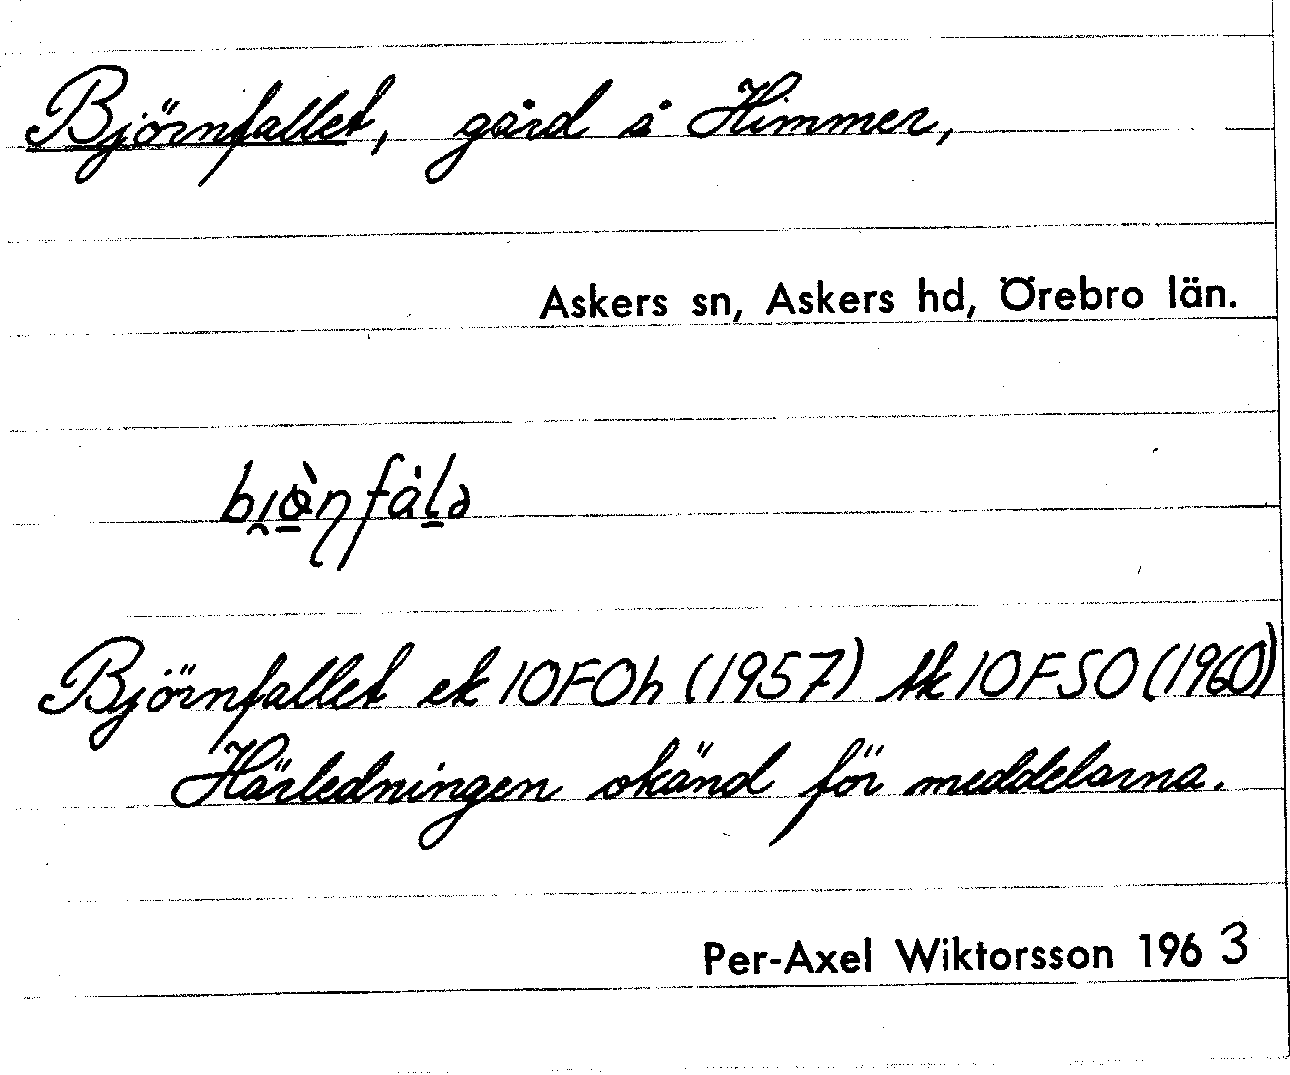 Björnfallet, gård å Himmer,
Askers sn, Askers hd, Örebro län.
Björnfallet ek 10F0h (1957) tk 10FSO (1960)
Härledningen okänd för meddelarna.
Per-Axel Wiktorsson 1963